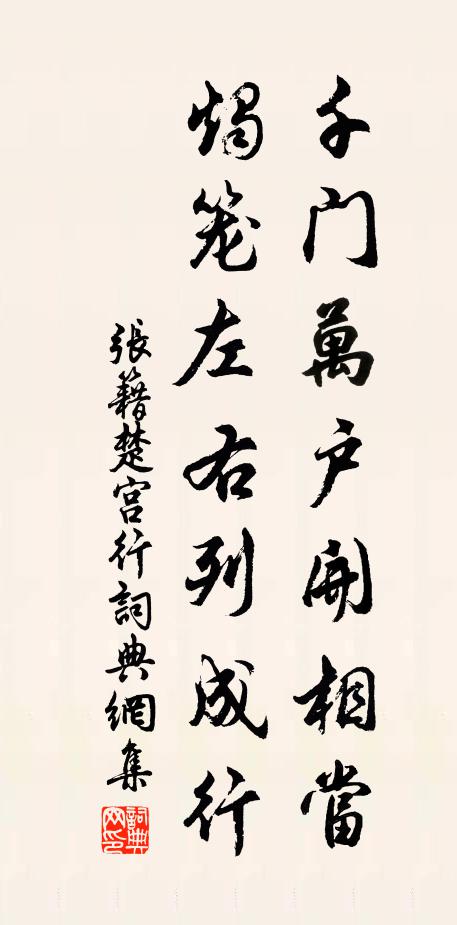 千門萬户開相當
燭笼左右列成行
張籍楚宫行詞典網集
詞典网印